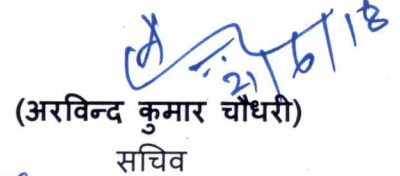 21/6/18
(अरविन्द कुमार चौधरी)
सचिव